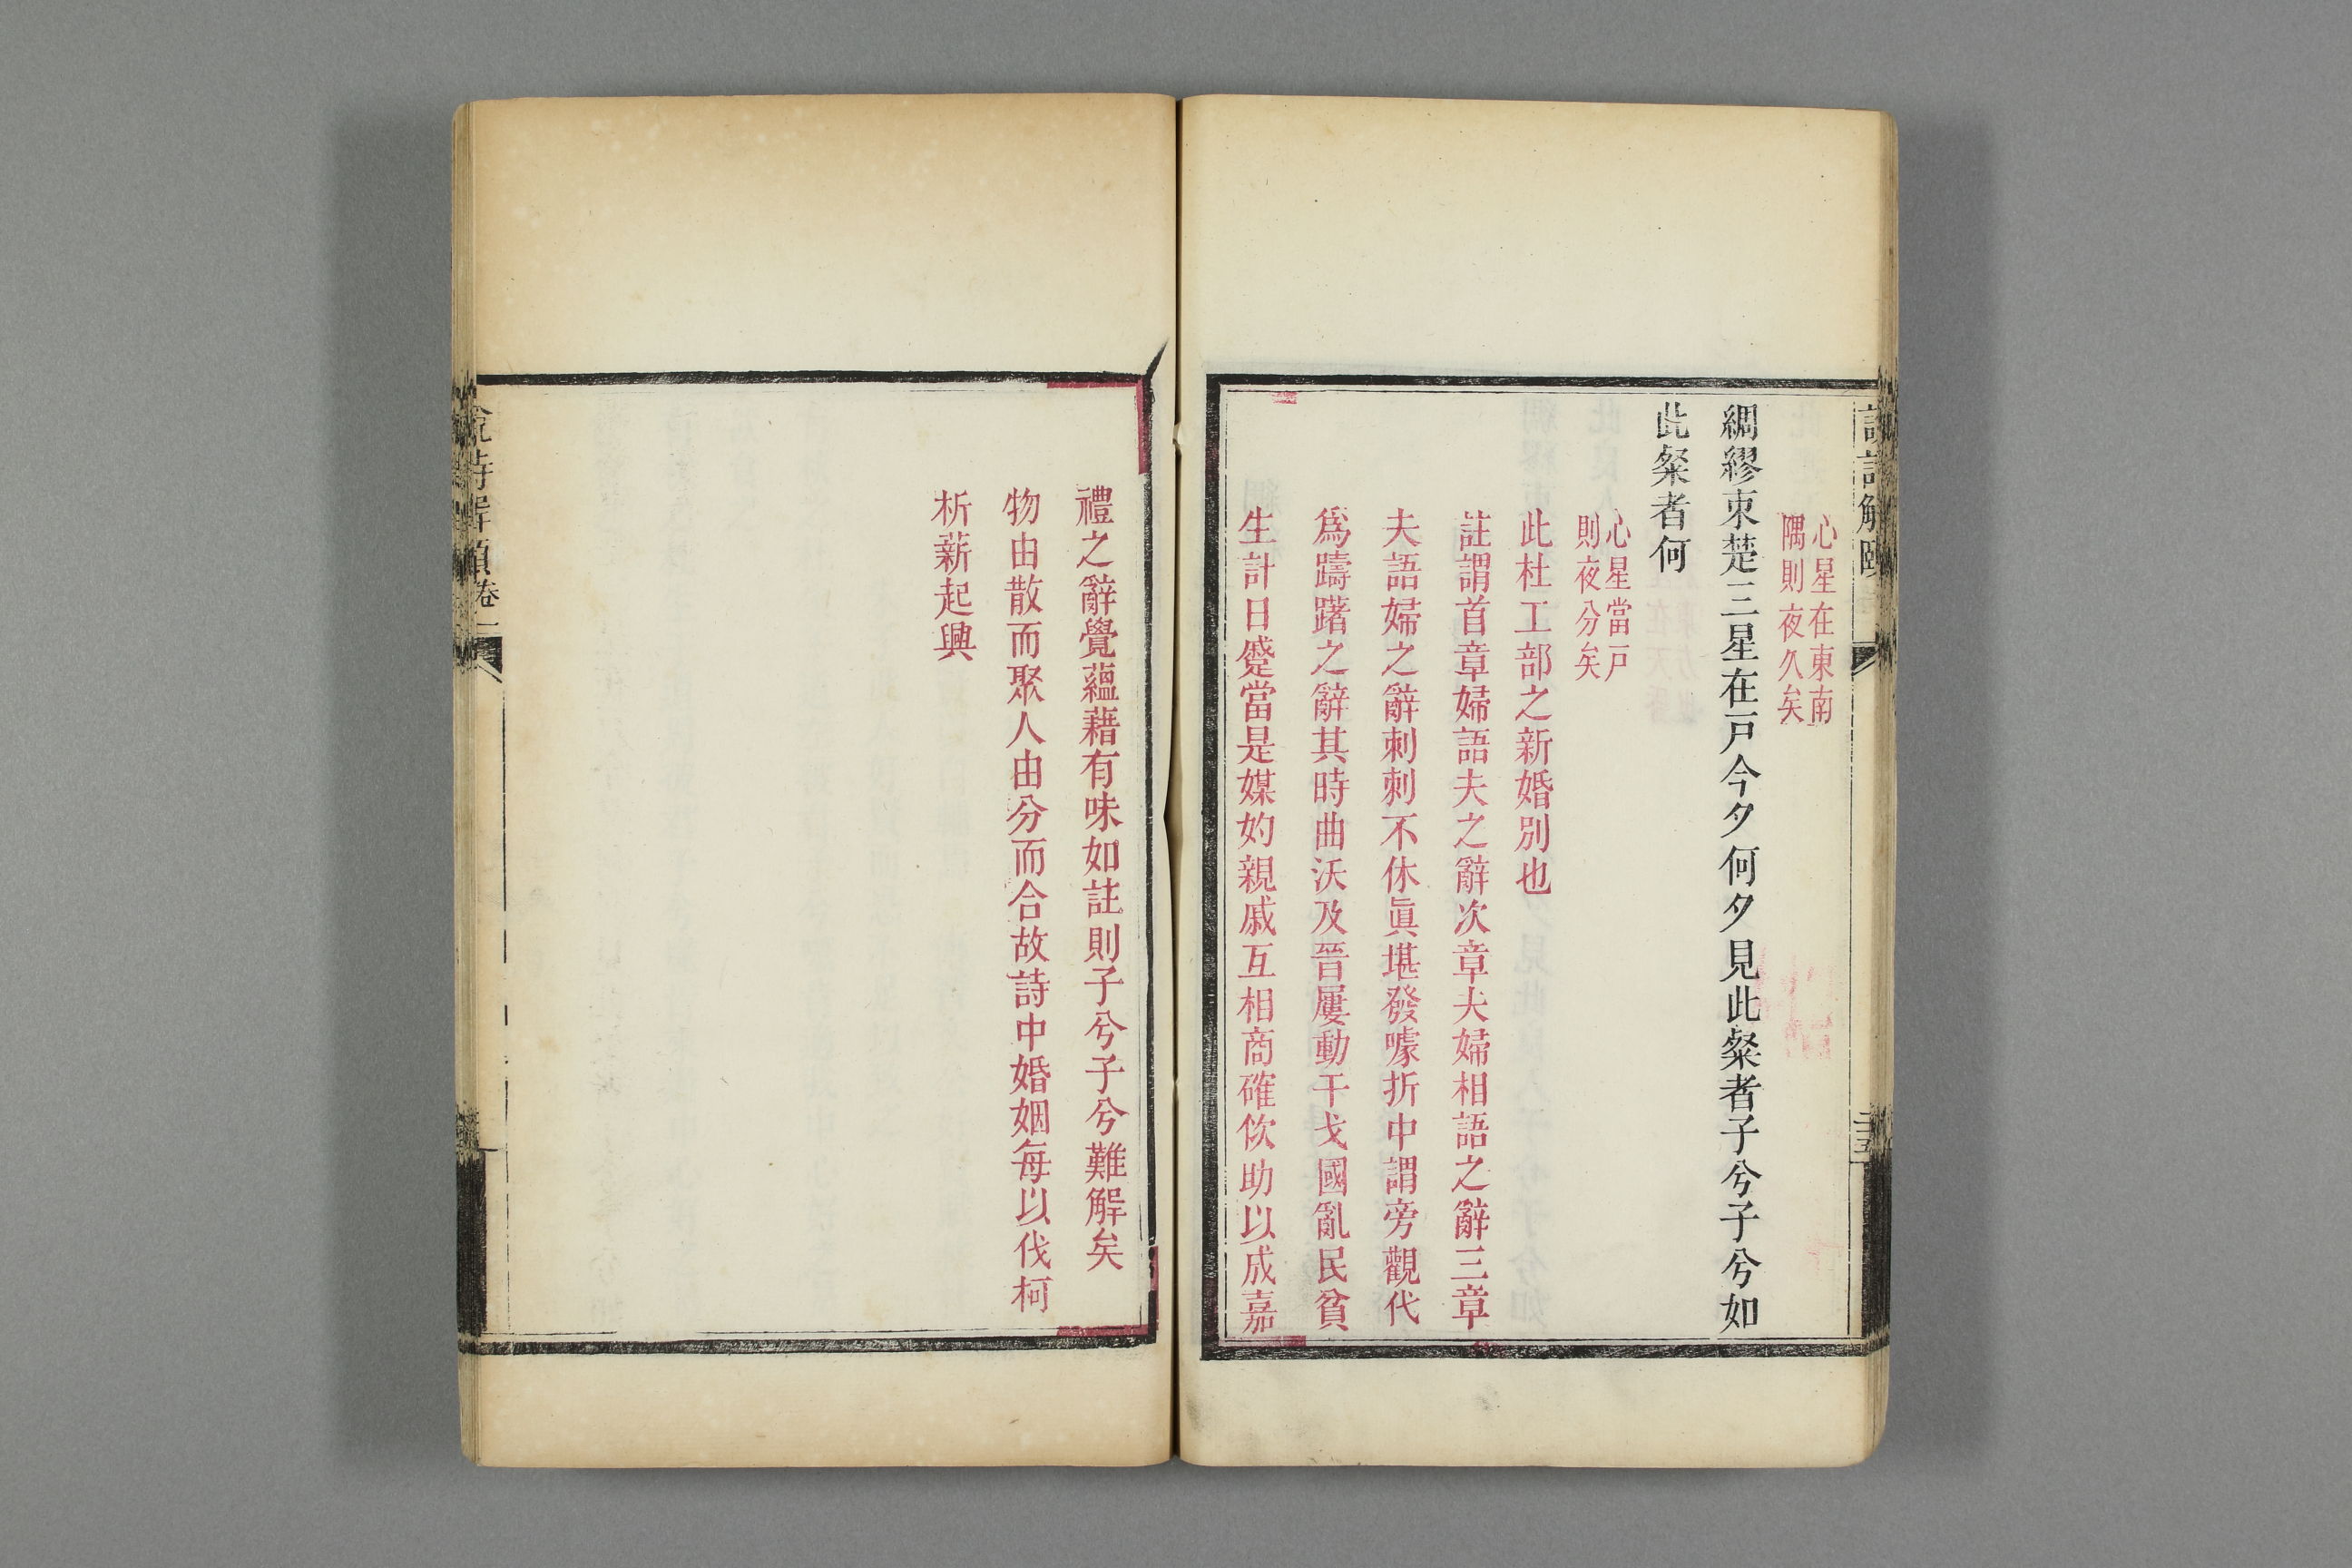 心星在東南
隅則夜久矣
綢繆束楚三星在戸今夕何夕見此粲者子兮子兮如
此粲者何
心星當戸
則夜分矣
此杜工部之新婚別也
註謂首章婦語夫之辭次章夫婦相語之辭三章
夫語婦之辭刺刺不休眞堪發噱折中謂旁觀代
爲躊躇之辭其時曲沃及晉屢動干戈國亂民貧
生計日蹙當是媒妁親戚互相商確佽助以成嘉
禮之辭覺蘊藉有味如註則子兮子兮難解矣
物由散而聚人由分而合故詩中婚姻每以伐柯
析薪起興
說詩解頤卷一